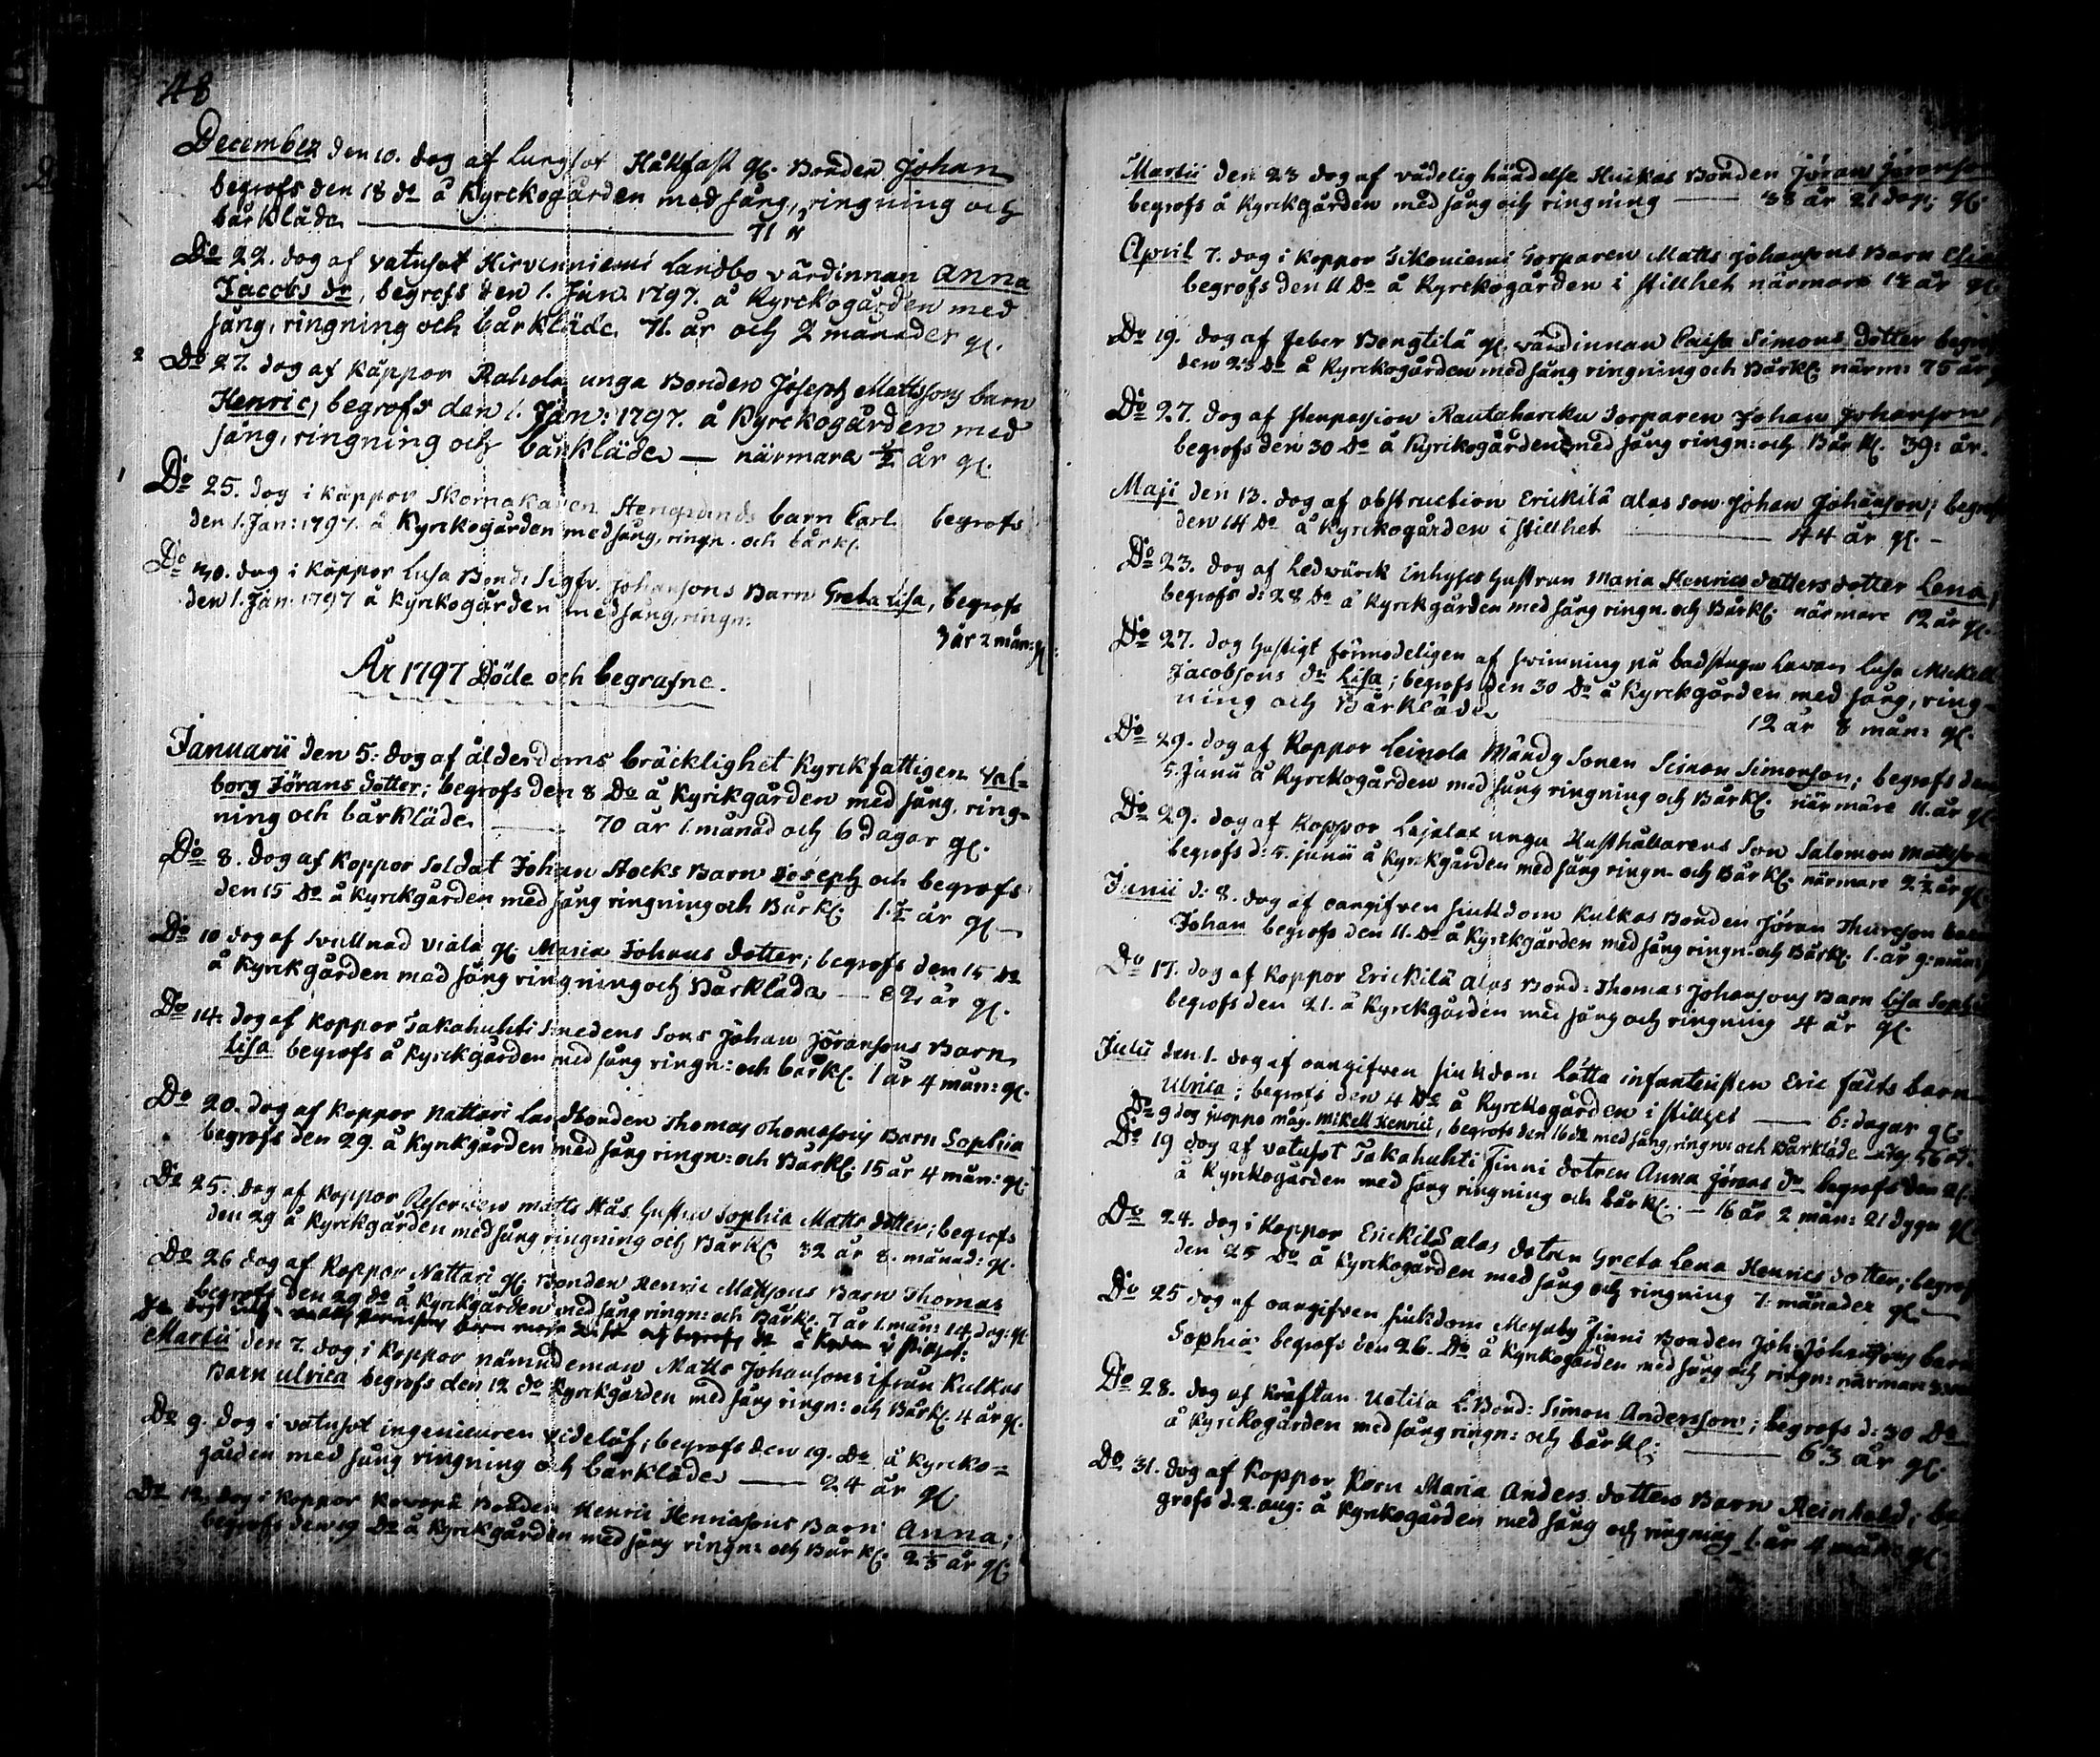 48
December den 10. dog af lungsot Håkfast gl. Bonden Johan
begrofs den 18 do å Kyrckogården med sång, ringning och
bårkläde 71
Do 22. dog af vatusot Hirvenniemi Landbo värdinnan Anna
Jacobs dr, begrofs den 1. Jan. 1797. å Kyrckogården med
sång, ringning och bårkläde 71. år och 2 månader gl.
2 Do 27. dog af käppor Rahola unga Bonden Joseph Mattssons barn
Henric, begrofs den 1. Jan: 1797. å Kyrckogården med
sång, ringning och bårkläde — närmare ½ år gl.
1 Do 25. dog i käppor Skomakaren barn Carl begrofs
den 1. Jan: 1797. å Kyrkogården med sång, ringn. och bårkl.
Do 30. dog i käppor Lusa Bond: Sigfr. Johansons Barn Greta Lisa, begrofs
den 1. Jan. 1797 å Kyrkogården med sång, ringn:
3 år 2 mån: gl.
År 1797 Döde och begrafne.
Januarii den 5: dog af ålderdoms bräcklighet Kyrckfattigen Val-
borg Jörans dotter; begrofs den 8 Do å Kyrckgården med sång, ring-
ning och bårkläde 70 år 1. månad och 6 dagar gl.
Do 8. dog af koppor Soldat Johan Stocks Barn Joseph och begrofs
den 15 Do å Kyrckgården med sång ringning och Bårkl. 1.½ år gl —
Do 10 dog af svullnad Viala gl. Maria Johans dotter; begrofs den 15 Do
å Kyrckgården med sång ringning och Bårkläde — 82. år gl.
Do 14: dog af koppor Takahuhti Smedens Sons Johan Jöransons Barn
Lisa begrofs å Kyrckgården med sång ringn: och bårkl. 1 år 4 mån: gl.
Do 20. dog af koppor Nattari Landbonden Thomas Thomassons Barn Sophia
begrofs den 29. å Kyrkgården med sång ringn: och Bårkl. 15 år 4 mån: gl.
Do 25: dog af koppor Reserven Matts Hustru Sophia Matts dotter; begrofs
den 29 å Kyrckgården med sång ringning och Bårkl 32 år 8. månad: gl.
Do 26 dog af Koppor Nattari gl. Bonden Henric Mattsons Barn Thomas
begrofs den 29 do å Kyrckgården med sång ringn: och Bårkl. 7 år 1. mån: 14 dag: gl
Martii den 7. dog i koppor nämndeman Matts Johansons ifrån Kulkas
Barn Ulrica begrofs den 12 do Kyrckgården med sång ringn: och Bårkl. 4 år gl.
Do 9. dog i vatusot ingenieuren Videlöf; begrofs den 19. Do å Kyrcko-
gården med sång ringning och bårkläde — 24 år gl.
Do 12. dog i koppor Bonden Henric Henricsons Barn Anna;
begrofs den 19 Do å Kyrckgården med sång ringn: och Bårkl. 2 år gl.
Martii den 23 dog af vådelig händelse Huikas Bonden Jöran Jöranson
begrofs å Kyrckgården med sång och ringning — 38 år 21 dag: gl.
April 7. dog i koppor Torparen Matts Johansons Barn
begrofs den 11 Do å Kyrckogården i stillhet närmare år gl.
Do 19. dog af feber Bengtilä gl. värdinnan Caisa Simons dotter begrof
den 23 Do å Kyrckogården med sång ringning och Bårkl. närm: 75 år
Do 27. dog af Rautaharcku Torparen Johan Johanson
begrofs den 30 Do å Kyrckogården med sång ringn: och Bårkl. 39: år.
Maji den 13. dog af obstruction Erickilä alas son Johan Johanson; begrof
den 14 Do å Kyrckogården i stillhet 44 år gl. —
Do 23. dog af Ledvärck Inhyses hustrun Maria Henrics dotters dotter Lena;
begrofs d: 28 Do å Kyrckgården med sång ringn. och Bårkl. närmare 12 år gl.
Do 27. dog hastigt förmodeligen af swimning på badstugu lawan Lusa Mickell
Jacobsons dr Lisa; begrofs den 30 Do å Kyrckgården med sång, ring-
ning och Bårkläde 12 år 8 mån: gl.
Do 29. dog af Koppor Leinola Måndg Sonen Simon Simonson; begrofs den
5. Junii å Kyrckogården med sång ringning och Bårkl. närmare 11. år gl.
Do 29. dog af Koppor unga Husthållarens Son Salomon Mattson
begrofs d: 5. junii å Kyrckgården med sång ringn och Bårkl. närmare 2½ år gl
Junii d: 8. dog af oangifven siukdom Kulkas Bonden Jöran Thureson barn
Johan begrofs den 11. Do å Kyrckgården med sång ringn: och Bårkl. 1. år 9: mån:
Do 17. dog af Koppor Erickilä alas Bond: Thomas Johansons Barn Lisa Sophia
begrofs den 21. å Kyrckgården med sång och ringning 4 år gl.
Julii den 1. dog af oangifven siukdom Lötta infanteristen Eric fälts barn
Ulrica; begrofs den 4 Do å Kyrckogården i stillhet — 6: dagar gl.
Do 9 dog koppo måg. Mikell Henric, begrofs den 16 do med sång, ringn: och Bårkläde
Do 19 dog af vatusot Takahuhti Jinni dotren Anna Jörans dr begrofs den 21.
å Kyrckogården med sång ringning och bårkl. — 16 år 2 mån: 21 dygn gl
Do 24. dog i koppor Erickilä alas dotren Greta Lena Henrics dotter; begrof
den 25 Do å Kyrckogården med sång och ringning 7: månader gl —
Do 25 dog af oangifven siukdom Messuby Jinni Bonden Joh: Johansons barn
Sophia begrofs den 26. Do å Kyrckogården med sång och ringn: närmare
Do 28. dog af kräftan Uotila E. Bond: Simon Andersson; begrofs d: 30 Do
å Kyrckogården med sång ringn: och bårkl: 63 år gl.
Do 31. dog af Koppor Maria Anders dotters Barn Reinhold; be
grofs d. 2. aug: å Kyrckogården med sång och ringning 1. år 4 mån: gl.